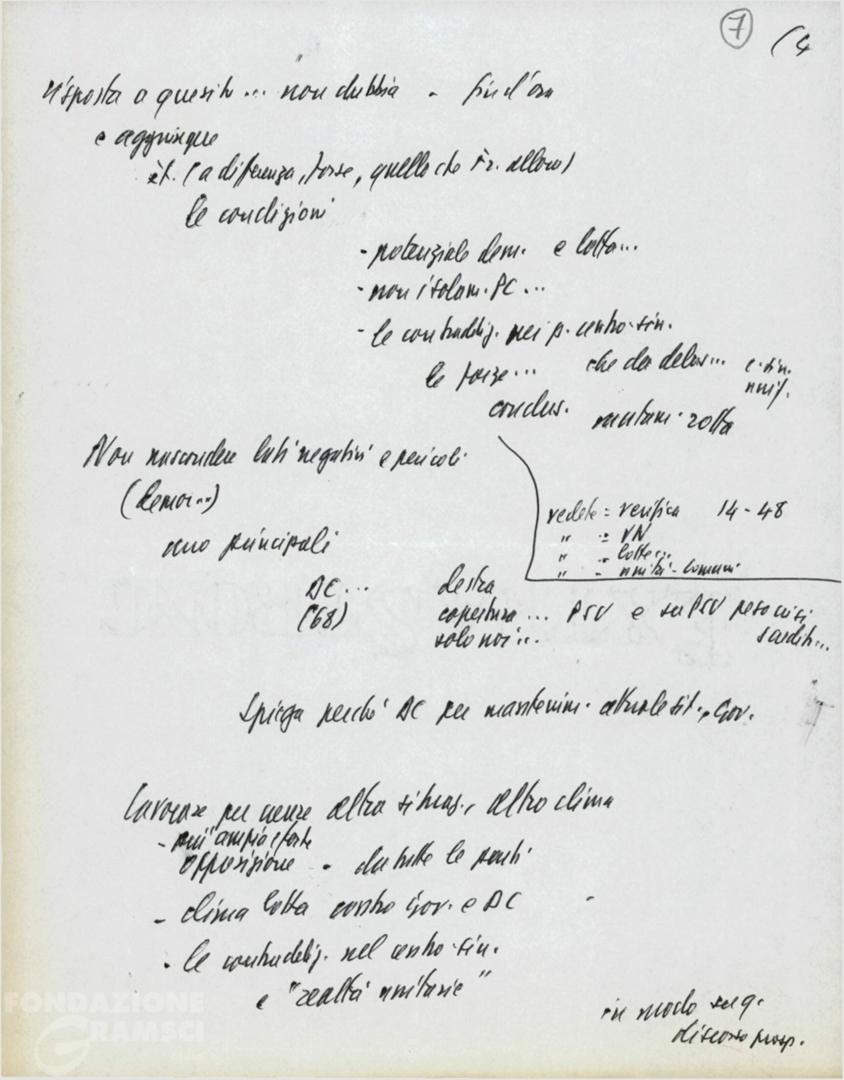 7 (4
risposta a quesito... non dubbia - fin d'ora
e aggiungue
(a differenza, forse, quello che allora)
le condizioni
- potenziale dem. e lotta...
- non isolam. PC...
- le contraddiz. nei p. centro-sin.
le forze... che da delus... e sin.
unif.
conclus. mutam. rotta
Non nascondere lati negativi e pericoli
(democ...)
uno principali
vedete = verifica 14-48
" = VN
" = lotte...
" - unità - comuni
DC... destra
('68) copertura... PSU e su PSU peso
solo noi...
Spiega perché DC per mantenim. attuale sit., Gov.
Lavorare per creare altra situaz., altro clima
- più ampia e forte
opposizione - da tutte le parti
- clima lotta contro Gov. e DC
- le contraddiz. nel centro-sin.
e "realtà unitarie"
in modo
discorso prosp.
FONDAZIONE
GRAMSCI